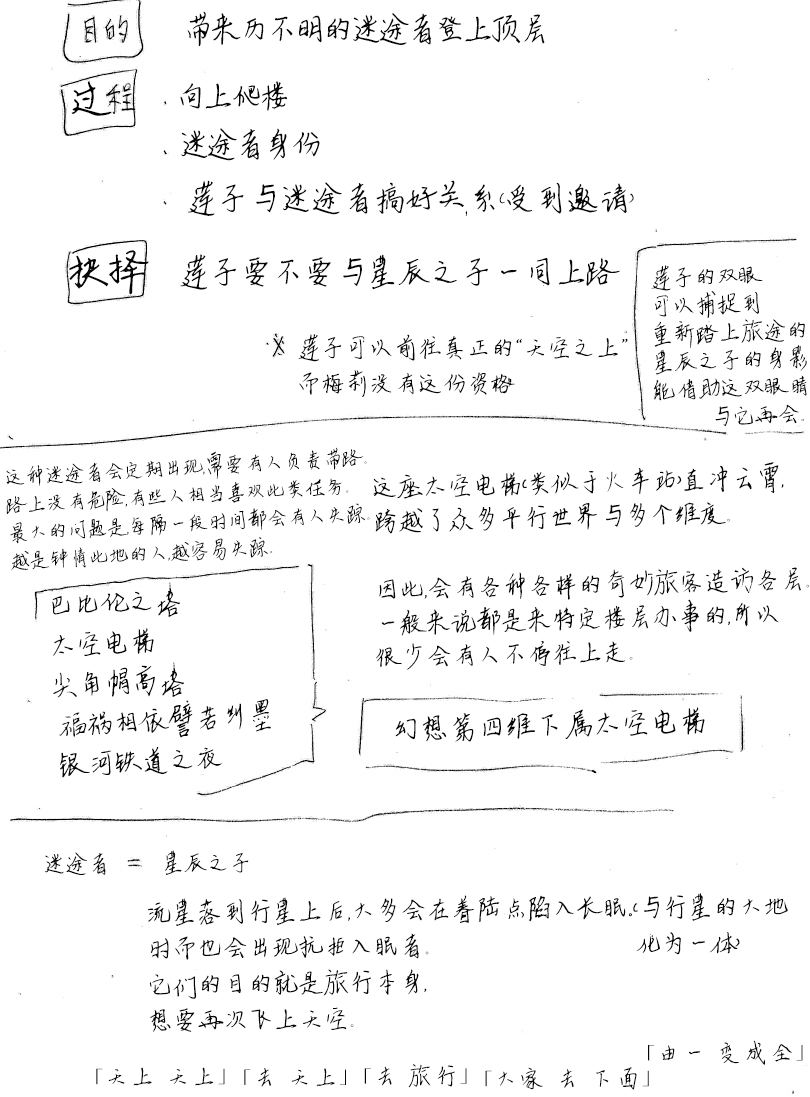 目的 带来历不明的迷途者登上顶层
过程 ·向上爬楼
·迷途者身份
·莲子与迷途者搞好关系(受到邀请)
抉择 莲子要不要与星辰之子一同上路
※ 莲子可以前往真正的“天空之上”
而梅莉没有这份资格
莲子的双眼
可以捕捉到
重新踏上旅途的
星辰之子的身影
能借助这双眼睛
与它再会.
这种迷途者会定期出现,需要有人负责带路.
路上没有危险,有些人相当喜欢此类任务.
最大的问题是每隔一段时间都会有人失踪.
越是钟情此地的人,越容易失踪.
这座太空电梯(类似于火车站)直冲云霄,
跨越了众多平行世界与多个维度.
因此,会有各种各样的奇妙旅客造访各层.
一般来说都是来特定楼层办事的,所以
很少会有人不停往上走.
巴比伦之塔
太空电梯
尖角帽高塔
福祸相依譬若纠墨
银河铁道之夜
幻想第四维下属太空电梯
迷途者 = 星辰之子
流星落到行星上后,大多会在着陆点陷入长眠.(与行星的大地
化为一体)
时而也会出现抗拒入眠者.
它们的目的就是旅行本身,
想要再次飞上天空.
「由一 变成全」
「天上 天上」「去 天上」「去 旅行」「大家 去 下面」